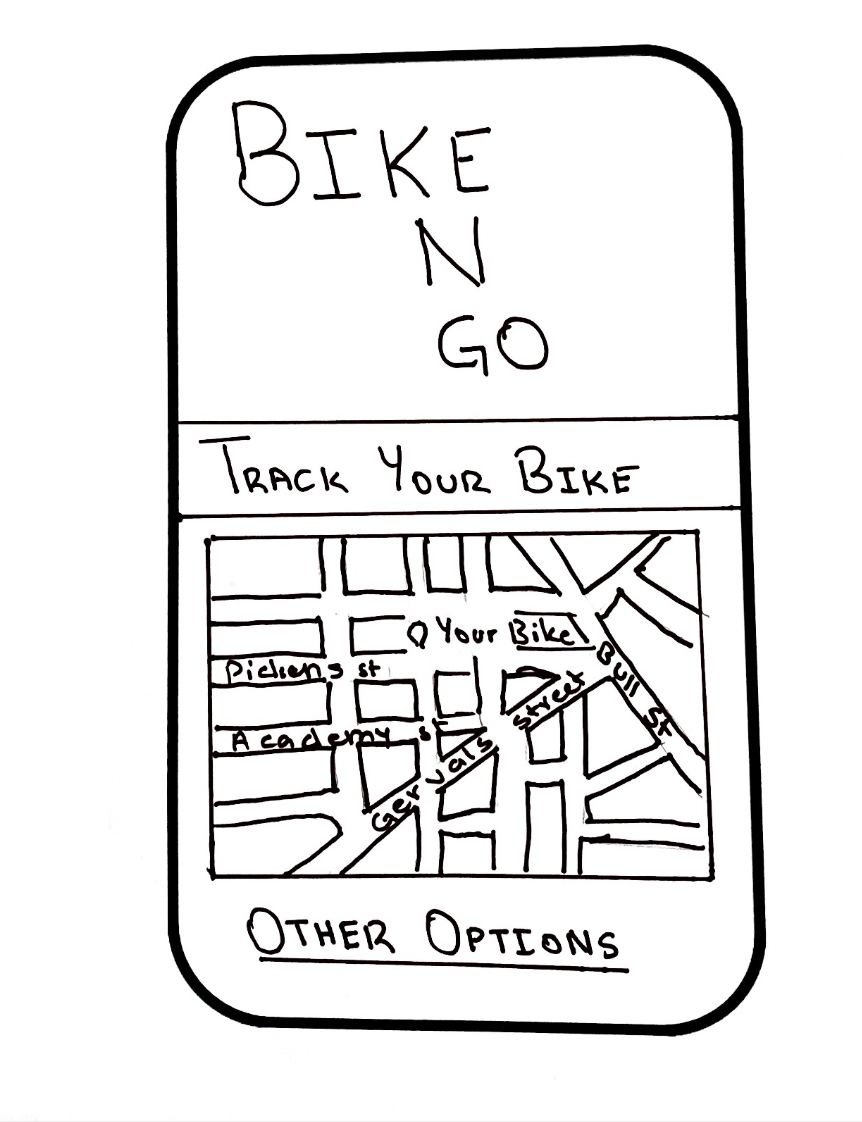 BIKE
N
GO
TRACK YOUR BIKE
Your Bike
Pickens st
Bull St
Academy st
Gervais street
OTHER OPTIONS